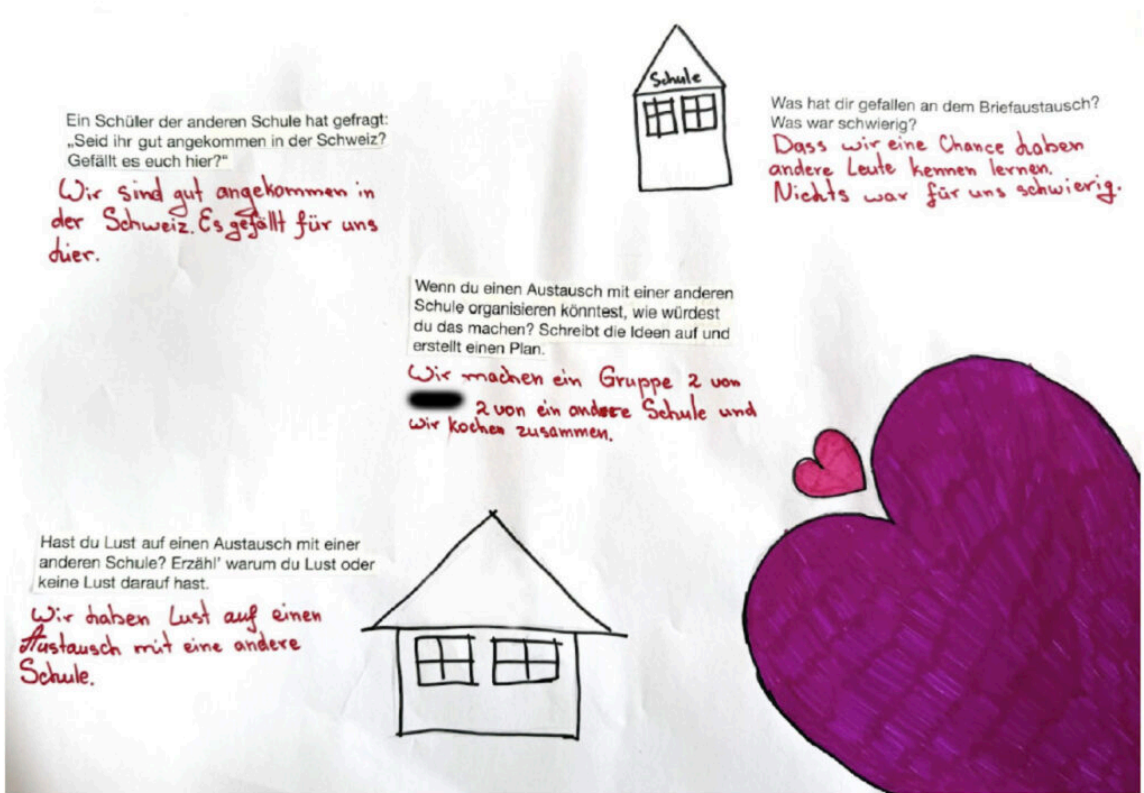 Schule
Ein Schüler der anderen Schule hat gefragt:
„Seid ihr gut angekommen in der Schweiz?
Gefällt es euch hier?“
Wir sind gut angekommen in
der Schweiz. Es gefällt für uns
hier.
Was hat dir gefallen an dem Briefaustausch?
Was war schwierig?
Dass wir eine Chance haben
andere Leute kennen lernen.
Nichts war für uns schwierig.
Wenn du einen Austausch mit einer anderen
Schule organisieren könntest, wie würdest
du das machen? Schreibt die Ideen auf und
erstellt einen Plan.
Wir machen ein Gruppe 2 von
2 von ein andere Schule und
wir kochen zusammen.
Hast du Lust auf einen Austausch mit einer
anderen Schule? Erzähl' warum du Lust oder
keine Lust darauf hast.
Wir haben Lust auf einen
Austausch mit eine andere
Schule.